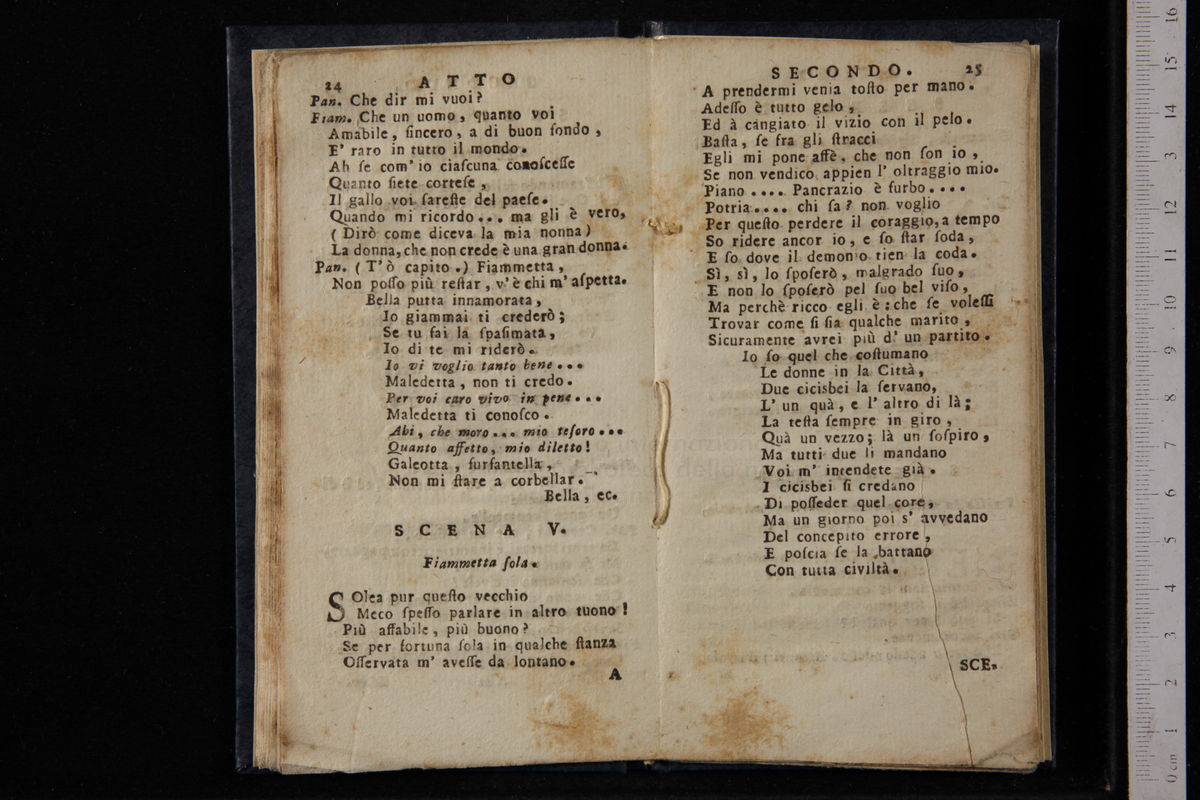 24 ATTO
Pan. Che dir mi vuoi?
Fiam. Che un uomo, quanto voi
Amabile, ſincero, a di buon fondo,
E' raro in tutto il mondo.
Ah ſe com' io ciaſcuna conoſceſſe
Quanto ſiete corteſe,
Il gallo voi ſareſte del paeſe.
Quando mi ricordo... ma gli è vero,
(Dirò come diceva la mia nonna)
La donna, che non crede è una gran donna.
Pan. (T' ò capito.) Fiammetta,
Non poſſo più reſtar, v'è chi m' aſpetta.
Bella putta innamorata,
Io giammai ti crederò;
Se tu fai la ſpaſimata,
Io di te mi riderò.
Io vi voglio tanto bene...
Maledetta, non ti credo.
Per voi caro vivo in pene...
Maledetta ti conoſco.
Ahi, che moro... mio teſoro...
Quanto affetto, mio diletto!
Galeotta, furfantella,
Non mi ſtare a corbellar.
Bella, ec.
SCENA V.
Fiammetta ſola.
SOlea pur queſto vecchio
Meco ſpeſſo parlare in altro tuono!
Più affabile, più buono?
Se per fortuna ſola in qualche ſtanza
Oſſervata m' aveſſe da lontano.
A
SECONDO. 25
A prendermi venia toſto per mano.
Adeſſo è tutto gelo,
Ed à cangiato il vizio con il pelo.
Baſta, ſe fra gli ſtracci
Egli mi pone affè, che non ſon io,
Se non vendico appien l' oltraggio mio.
Piano .... Pancrazio è furbo....
Potria.... chi ſa? non voglio
Per queſto perdere il coraggio, a tempo
So ridere ancor io, e ſo ſtar ſoda,
E ſo dove il demonio tien la coda.
Sì, sì, lo ſpoſerò, malgrado ſuo,
E non lo ſpoſerò pel ſuo bel viſo,
Ma perchè ricco egli è: che ſe voleſſi
Trovar come ſi ſia qualche marito,
Sicuramente avrei più d' un partito.
Io ſo quel che coſtumano
Le donne in la Città,
Due cicisbei la ſervano,
L' un quà, e l' altro di là;
La teſta ſempre in giro,
Quà un vezzo; là un ſoſpiro,
Ma tutti due li mandano
Voi m' intendete già.
I cicisbei ſi credano
Di poſſeder quel core,
Ma un giorno poi s' avvedano
Del concepito errore,
E poſcia ſe la battano
Con tutta civiltà.
SCE-